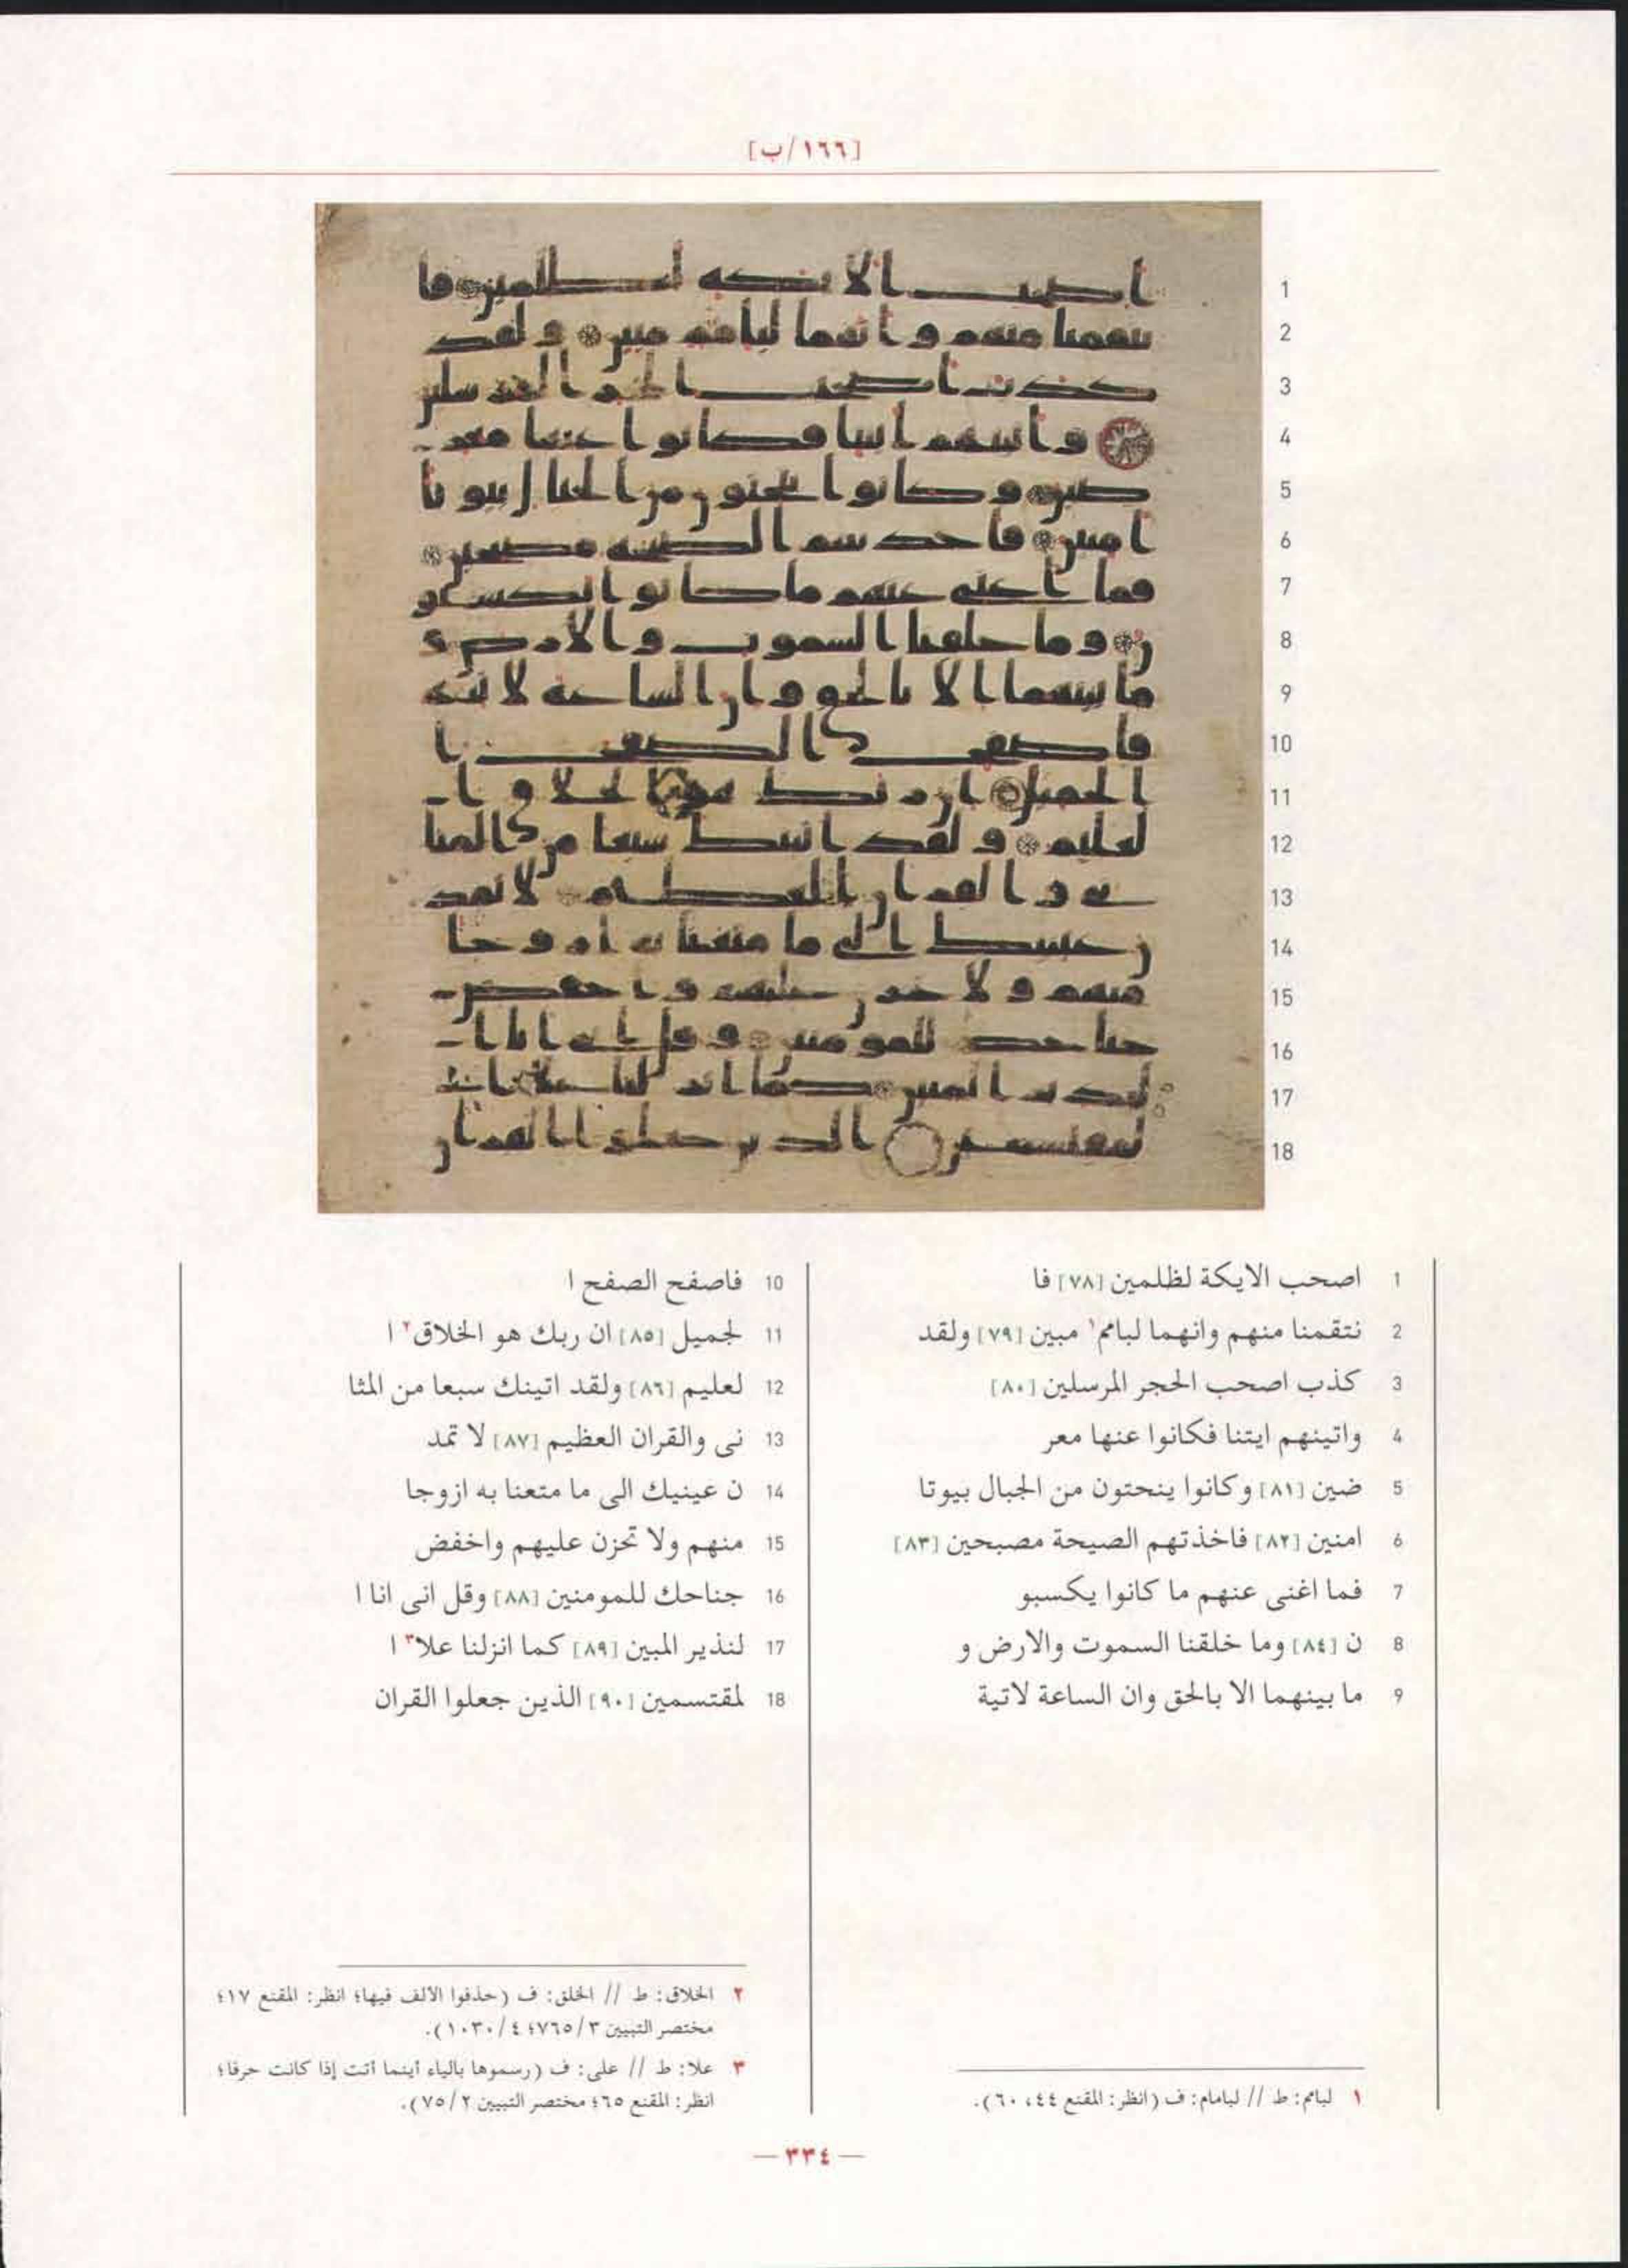 [١٦٦/ب]
1 اصحب الايكة لظلمين [٧٨] فا
2 نتقمنا منهم وانهما لبامم١ مبين [٧٩] ولقد
3 كذب اصحب الحجر المرسلين [٨٠]
4 واتينهم ايتنا فكانوا عنها معر
5 ضين [٨١] وكانوا ينحتون من الجبال بيوتا
6 امنين [٨٢] فاخذتهم الصيحة مصبحين [٨٣]
7 فما اغنى عنهم ما كانوا يكسبو
8 ن [٨٤] وما خلقنا السموت والارض و
9 ما بينهما الا بالحق وان الساعة لاتية
10 فاصفح الصفح ا
11 لجميل [٨٥] ان ربك هو الخلاق٢ ا
12 لعليم [٨٦] ولقد اتينك سبعا من المثا
13 نى والقران العظيم [٨٧] لا تمد
14 ن عينيك الى ما متعنا به ازوجا
15 منهم ولا تحزن عليهم واخفض
16 جناحك للمومنين [٨٨] وقل انى انا ا
17 لنذير المبين [٨٩] كما انزلنا علا٣ ا
18 لمقتسمين [٩٠] الذين جعلوا القران
١ لبامم: ط // لبامام: ف (انظر: المقنع ٤٤، ٦٠).
٢ الخلاق: ط // الخلق: ف (حذفوا الألف فيها؛ انظر: المقنع ١٧؛
مختصر التبيين ٣/٧٦٥؛ ٤/١٠٣٠).
٣ علا: ط // على: ف (رسموها بالياء أينما أتت إذا كانت حرفا؛
انظر: المقنع ٦٥؛ مختصر التبيين ٢/٧٥).
— ٣٣٤ —